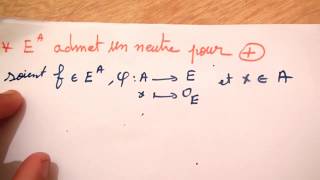 * E^A admet un neutre pour ⊕
soient f ∈ E^A, φ : A → E et x ∈ A
x ↦ 0_E